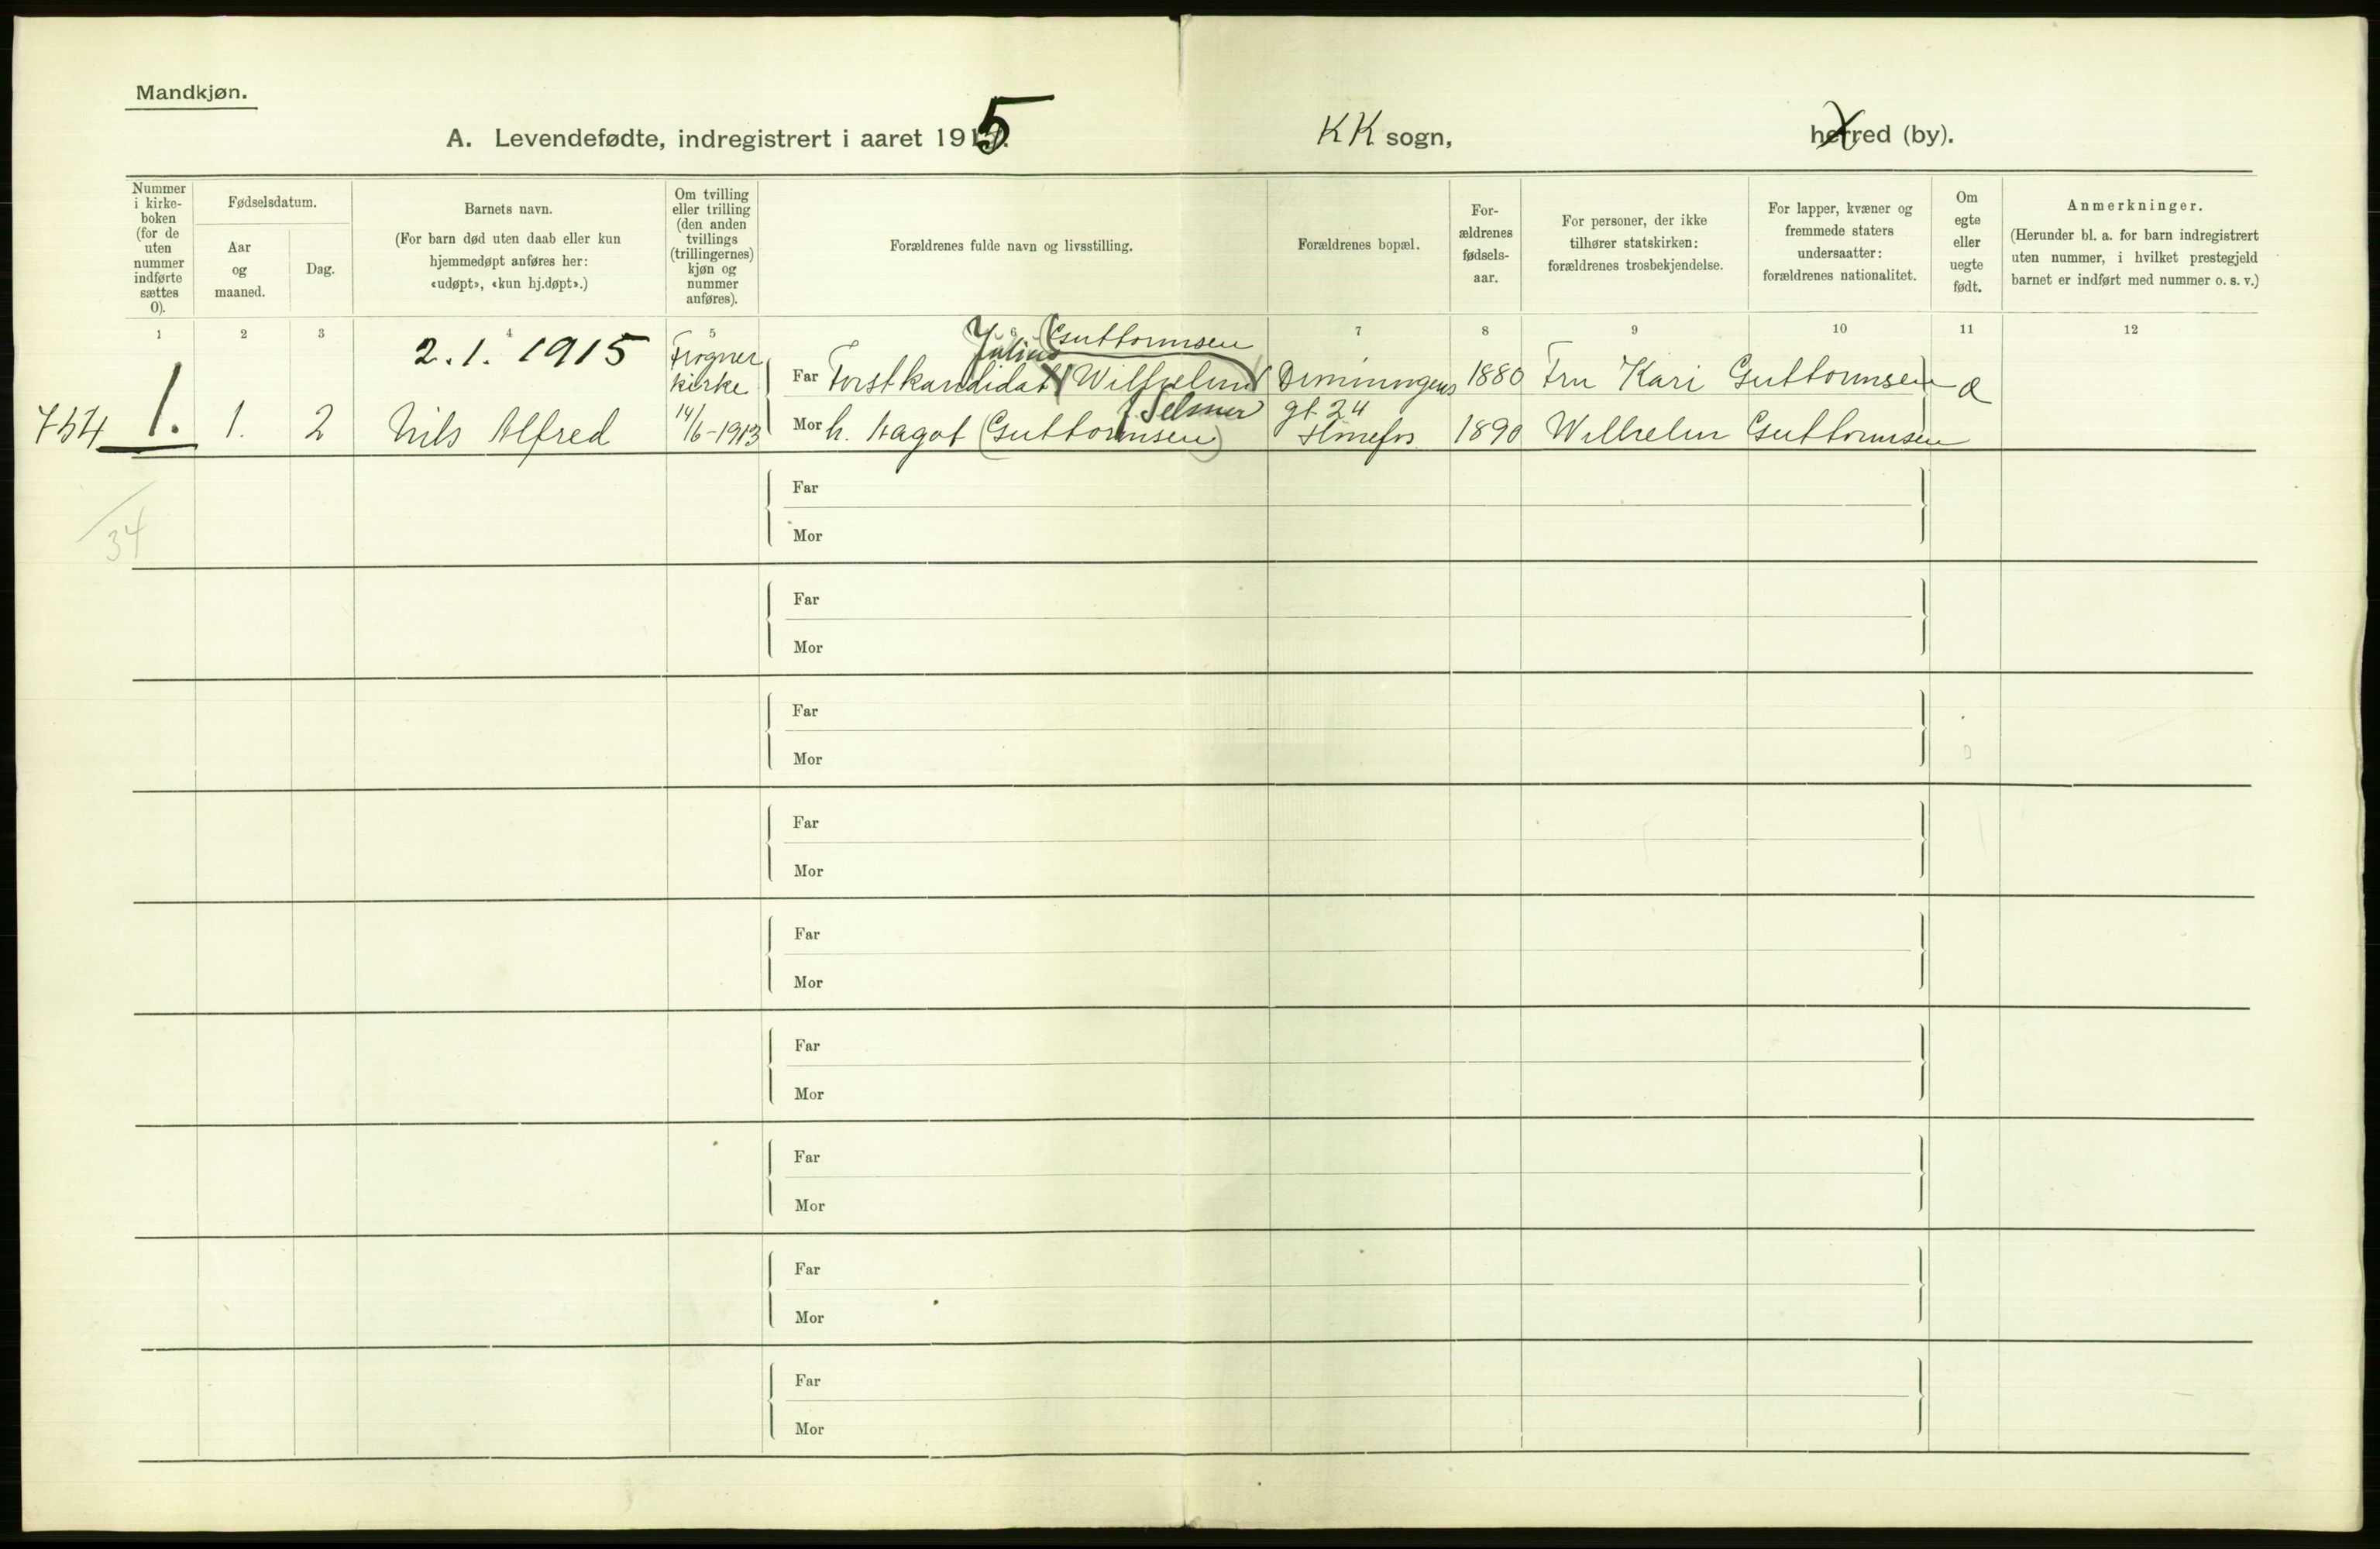 Mandkjøn.
A. Levendefødte, indregistrert i aaret 1915.
KK sogn,
herred (by).
Nummer
i kirke-
boken
(for de
uten
nummer
indførte
sættes
0).
Fødselsdatum.
Aar
og
maaned.
Dag.
Barnets navn.
(For barn død uten daab eller kun
hjemmedøpt anføres her:
«udøpt», «kun hj.døpt».)
Om tvilling
eller trilling
(den anden
tvillings
(trillingernes)
kjøn og
nummer
anføres).
Forældrenes fulde navn og livsstilling.
Forældrenes bopæl.
For-
ældrenes
fødsels-
aar.
For personer, der ikke
tilhører statskirken:
forældrenes trosbekjendelse.
For lapper, kvæner og
fremmede staters
undersaatter:
forældrenes nationalitet.
Om
egte
eller
uegte
født.
Anmerkninger.
(Herunder bl. a. for barn indregistrert
uten nummer, i hvilket prestegjeld
barnet er indført med nummer o. s. v.)
1 2 3 4 5 6 7 8 9 10 11 12
2.1. 1915
Frogner
kirke
14/6-1913
Julius Guttormsen
Far Forstkandidat Wilhelm
1880 Fru Kari Guttormsen
1. 1. 2 Nils Alfred
f. Selmer
Mor h. Aagot (Guttormsen)
gt. 24
1890 Wilhelm Guttormsen
34
Far
Mor
Far
Mor
Far
Mor
Far
Mor
Far
Mor
Far
Mor
Far
Mor
Far
Mor
Far
Mor